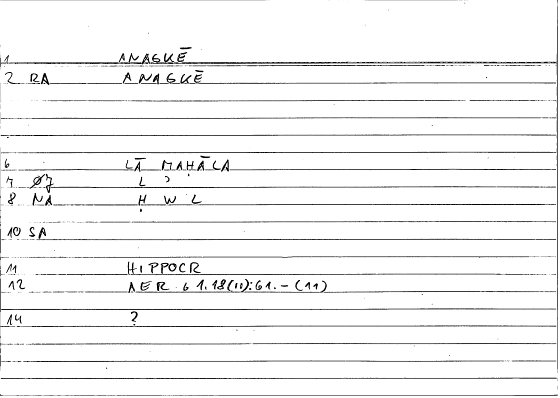 1 ANAGKĒ
2 RA ANAGKĒ
6 LĀ MAḤĀLA
7 L ʾ
8 NA Ḥ W L
10 SA
11 HIPPOCR
12 AER 61.18(11):61.-(11)
14 ?